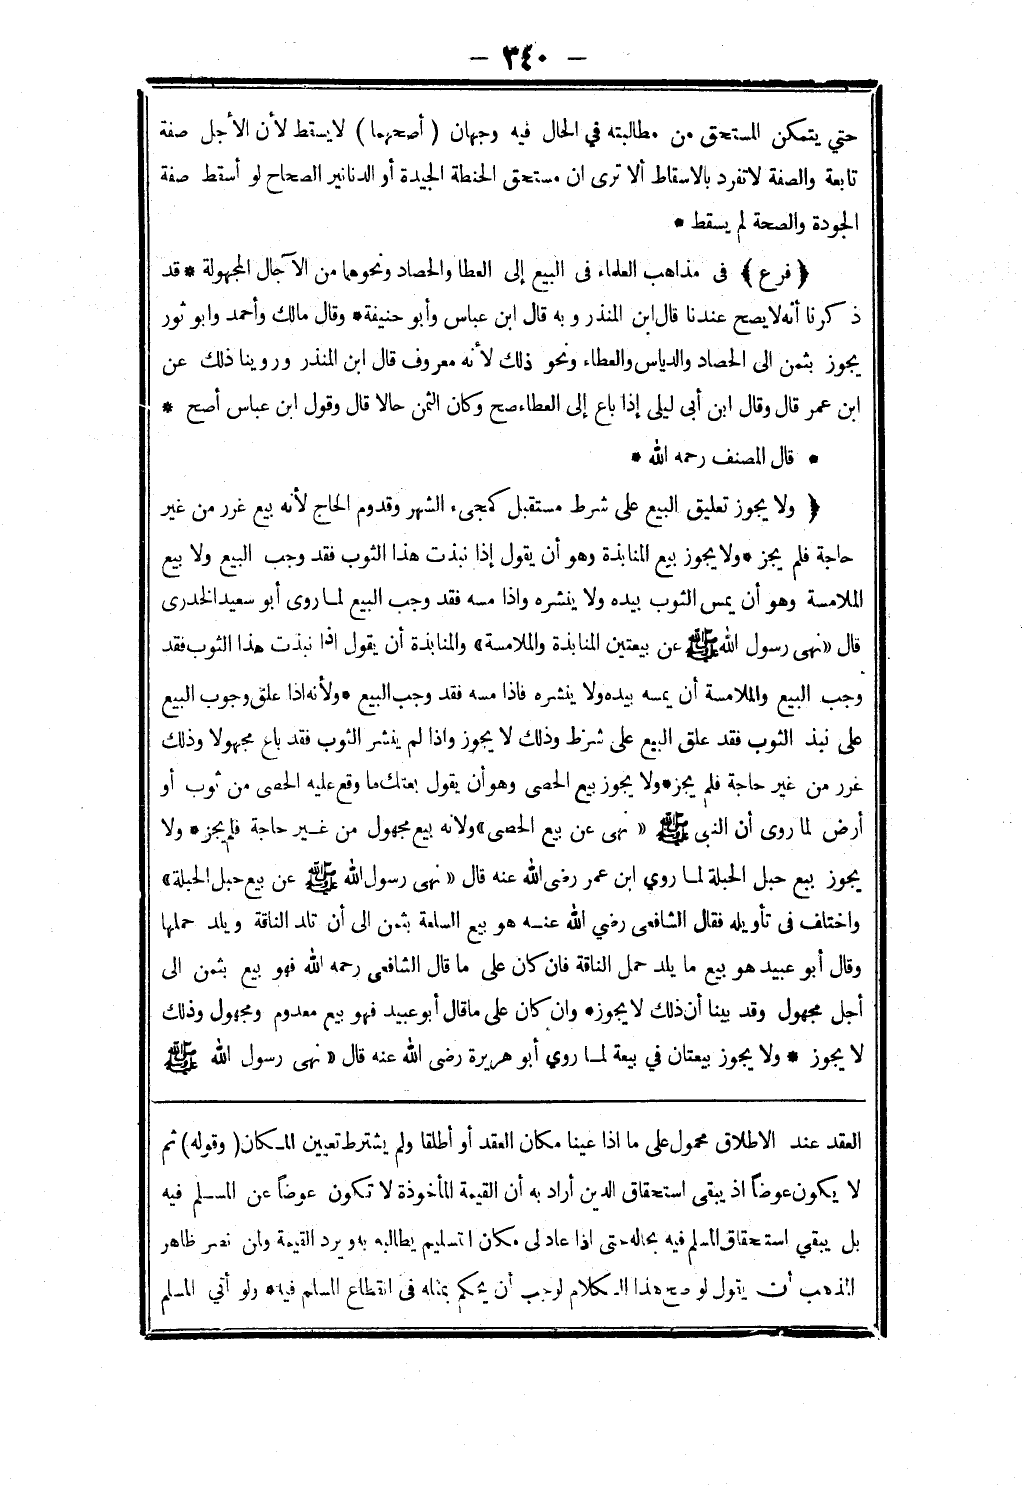 - ٣٤٠ -
حتي يتمكن المستحق من مطالبته في الحال فيه وجهان ( أصحهما ) لايسقط لأن الأجل صفة
تابعة والصفة لاتفرد بالاسقاط ألا ترى ان مستحق الحنطة الجيدة أو الدنانير الصحاح لو أسقط صفة
الجودة والصحة لم يسقط *
﴿ فرع ﴾ فى مذاهب العلماء فى البيع إلى العطا والحصاد ونحوهما من الآجال المجهولة * قد
ذكرنا أنه لايصح عندنا قال ابن المنذر وبه قال ابن عباس وأبو حنيفة* وقال مالك وأحمد وابو ثور
يجوز بثمن الى الحصاد والدياس والعطاء ونحو ذلك لأنه معروف قال ابن المنذر وروينا ذلك عن
ابن عمر قال وقال ابن أبى ليلى إذا باع إلى العطاء صح وكان الثمن حالا قال وقول ابن عباس أصح *
* قال المصنف رحمه الله *
﴿ ولا يجوز تعليق البيع على شرط مستقبل كمجىء الشهر وقدوم الحاج لأنه بيع غرر من غير
حاجة فلم يجز * ولا يجوز بيع المنابذة وهو أن يقول إذا نبذت هذا الثوب فقد وجب البيع ولا بيع
الملامسة وهو أن يمس الثوب بيده ولا ينشره واذا مسه فقد وجب البيع لما روى أبو سعيد الخدرى
قال «نهى رسول الله ﷺ عن بيعتين المنابذة والملامسة» والمنابذة أن يقول اذا نبذت هذا الثوب فقد
وجب البيع والملامسة أن يمسه بيده ولا ينشره فاذا مسه فقد وجب البيع * ولأنه اذا علق وجوب البيع
على نبذ الثوب فقد علق البيع على شرط وذلك لا يجوز واذا لم ينشر الثوب فقد باع مجهولا وذلك
غرر من غير حاجة فلم يجز* ولا يجوز بيع الحصى وهو أن يقول بعتك ما وقع عليه الحصى من ثوب أو
أرض لما روى أن النبى ﷺ « نهى عن بيع الحصى» ولانه بيع مجهول من غير حاجة فلم يجز * ولا
يجوز بيع حبل الحبلة لما روي ابن عمر رضى الله عنه قال « نهى رسول الله ﷺ عن بيع حبل الحبلة»
واختلف فى تأويله فقال الشافعى رضي الله عنه هو بيع السلعة بثمن الى أن تلد الناقة ويلد حملها
وقال أبو عبيد هو بيع ما يلد حمل الناقة فان كان على ما قال الشافعى رحمه الله فهو بيع بثمن الى
أجل مجهول وقد بينا أن ذلك لا يجوز* وان كان على ما قال أبو عبيد فهو بيع معدوم ومجهول وذلك
لا يجوز * ولا يجوز بيعتان في بيعة لما روي أبو هريرة رضى الله عنه قال « نهى رسول الله ﷺ
العقد عند الاطلاق محمول على ما اذا عينا مكان العقد أو أطلقا ولم يشترط تعيين المكان ( وقوله ) ثم
لا يكون عوضاً اذ يبقى استحقاق الدين أراد به أن القيمة المأخوذة لا تكون عوضاً عن المسلم فيه
بل يبقي استحقاق المسلم فيه بحاله حتى اذا عاد لى مكان التسليم يطالبه به ويرد القيمة ولمن نصر ظاهر
المذهب أن يقول لو صح هذا الكلام لوجب أن يحكم بمثله فى انقطاع المسلم فيه* ولو أتي المسلم